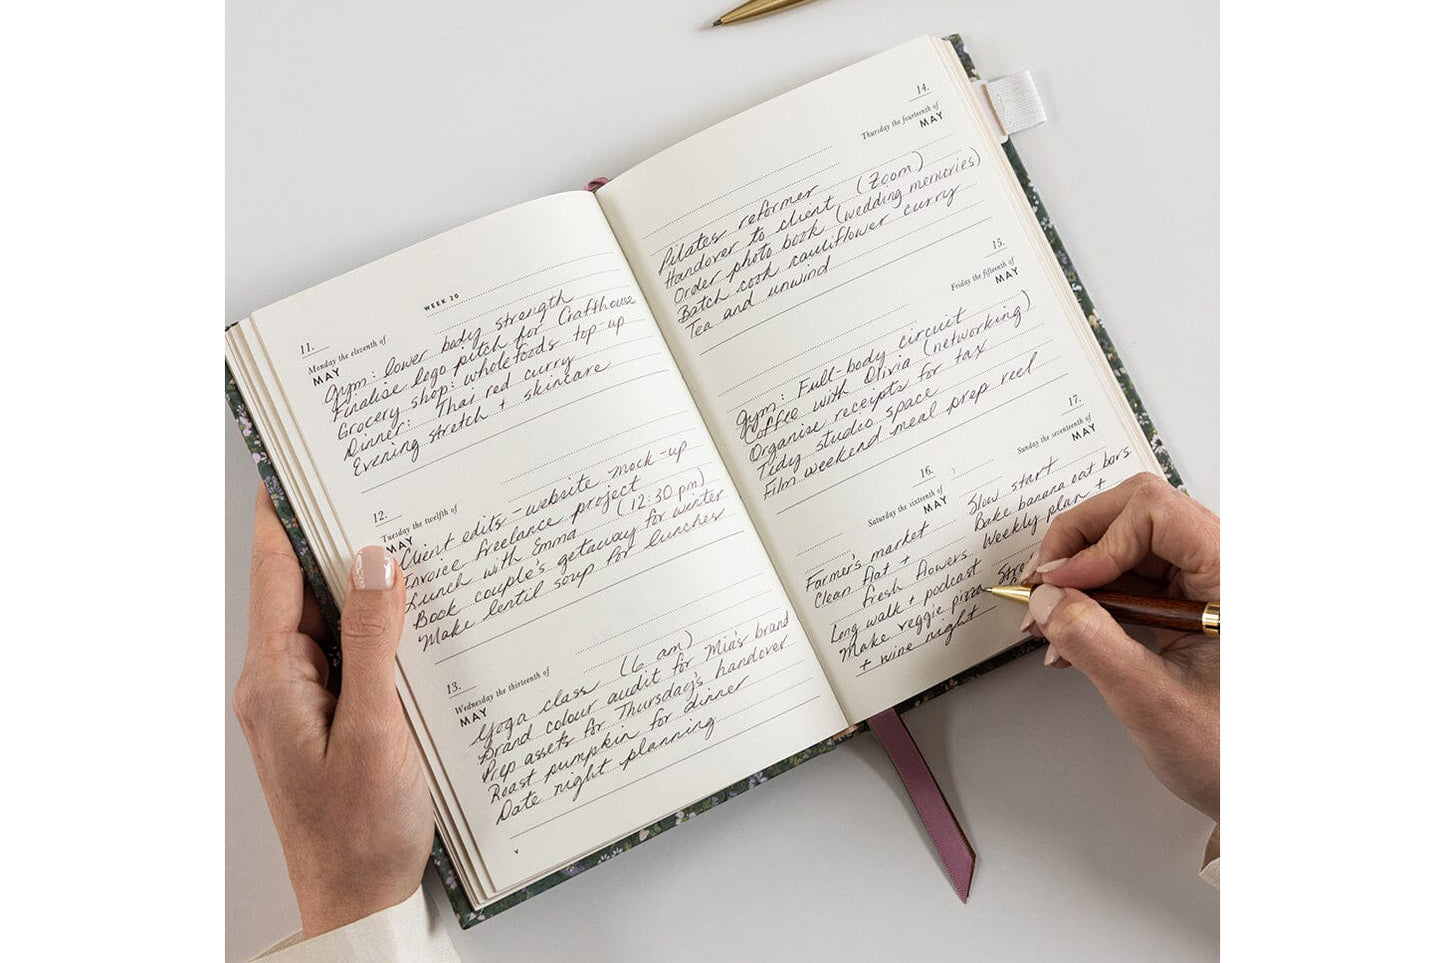 WEEK 20
11.
Monday the eleventh of
MAY
Gym: lower body strength
Finalise logo pitch for Crafthouse
Grocery shop: wholefoods top-up
Dinner: Thai red curry
Evening stretch + skincare
12.
Tuesday the twelfth of
MAY
Client edits - website mock-up
Invoice freelance project
Lunch with Emma (12:30 pm)
Book couple's getaway for winter
Make lentil soup for lunches
13.
Wednesday the thirteenth of
MAY
Yoga class (6 am)
Brand colour audit for Mia's brand
Prep assets for Thursday's handover
Roast pumpkin for dinner
Date night planning
14.
Thursday the fourteenth of
MAY
Pilates reformer
Handover to client (Zoom)
Order photo book (wedding memories)
Batch cook cauliflower curry
Tea and unwind
15.
Friday the fifteenth of
MAY
Gym: Full-body circuit
Coffee with Olivia (networking)
Organise receipts for tax
Tidy studio space
Film weekend meal prep reel
16.
Saturday the sixteenth of
MAY
Farmer's market
Clean flat +
fresh flowers
Long walk + podcast
Make veggie pizza
+ wine night
17.
Sunday the seventeenth of
MAY
Slow start
Bake banana oat bars
Weekly plan +